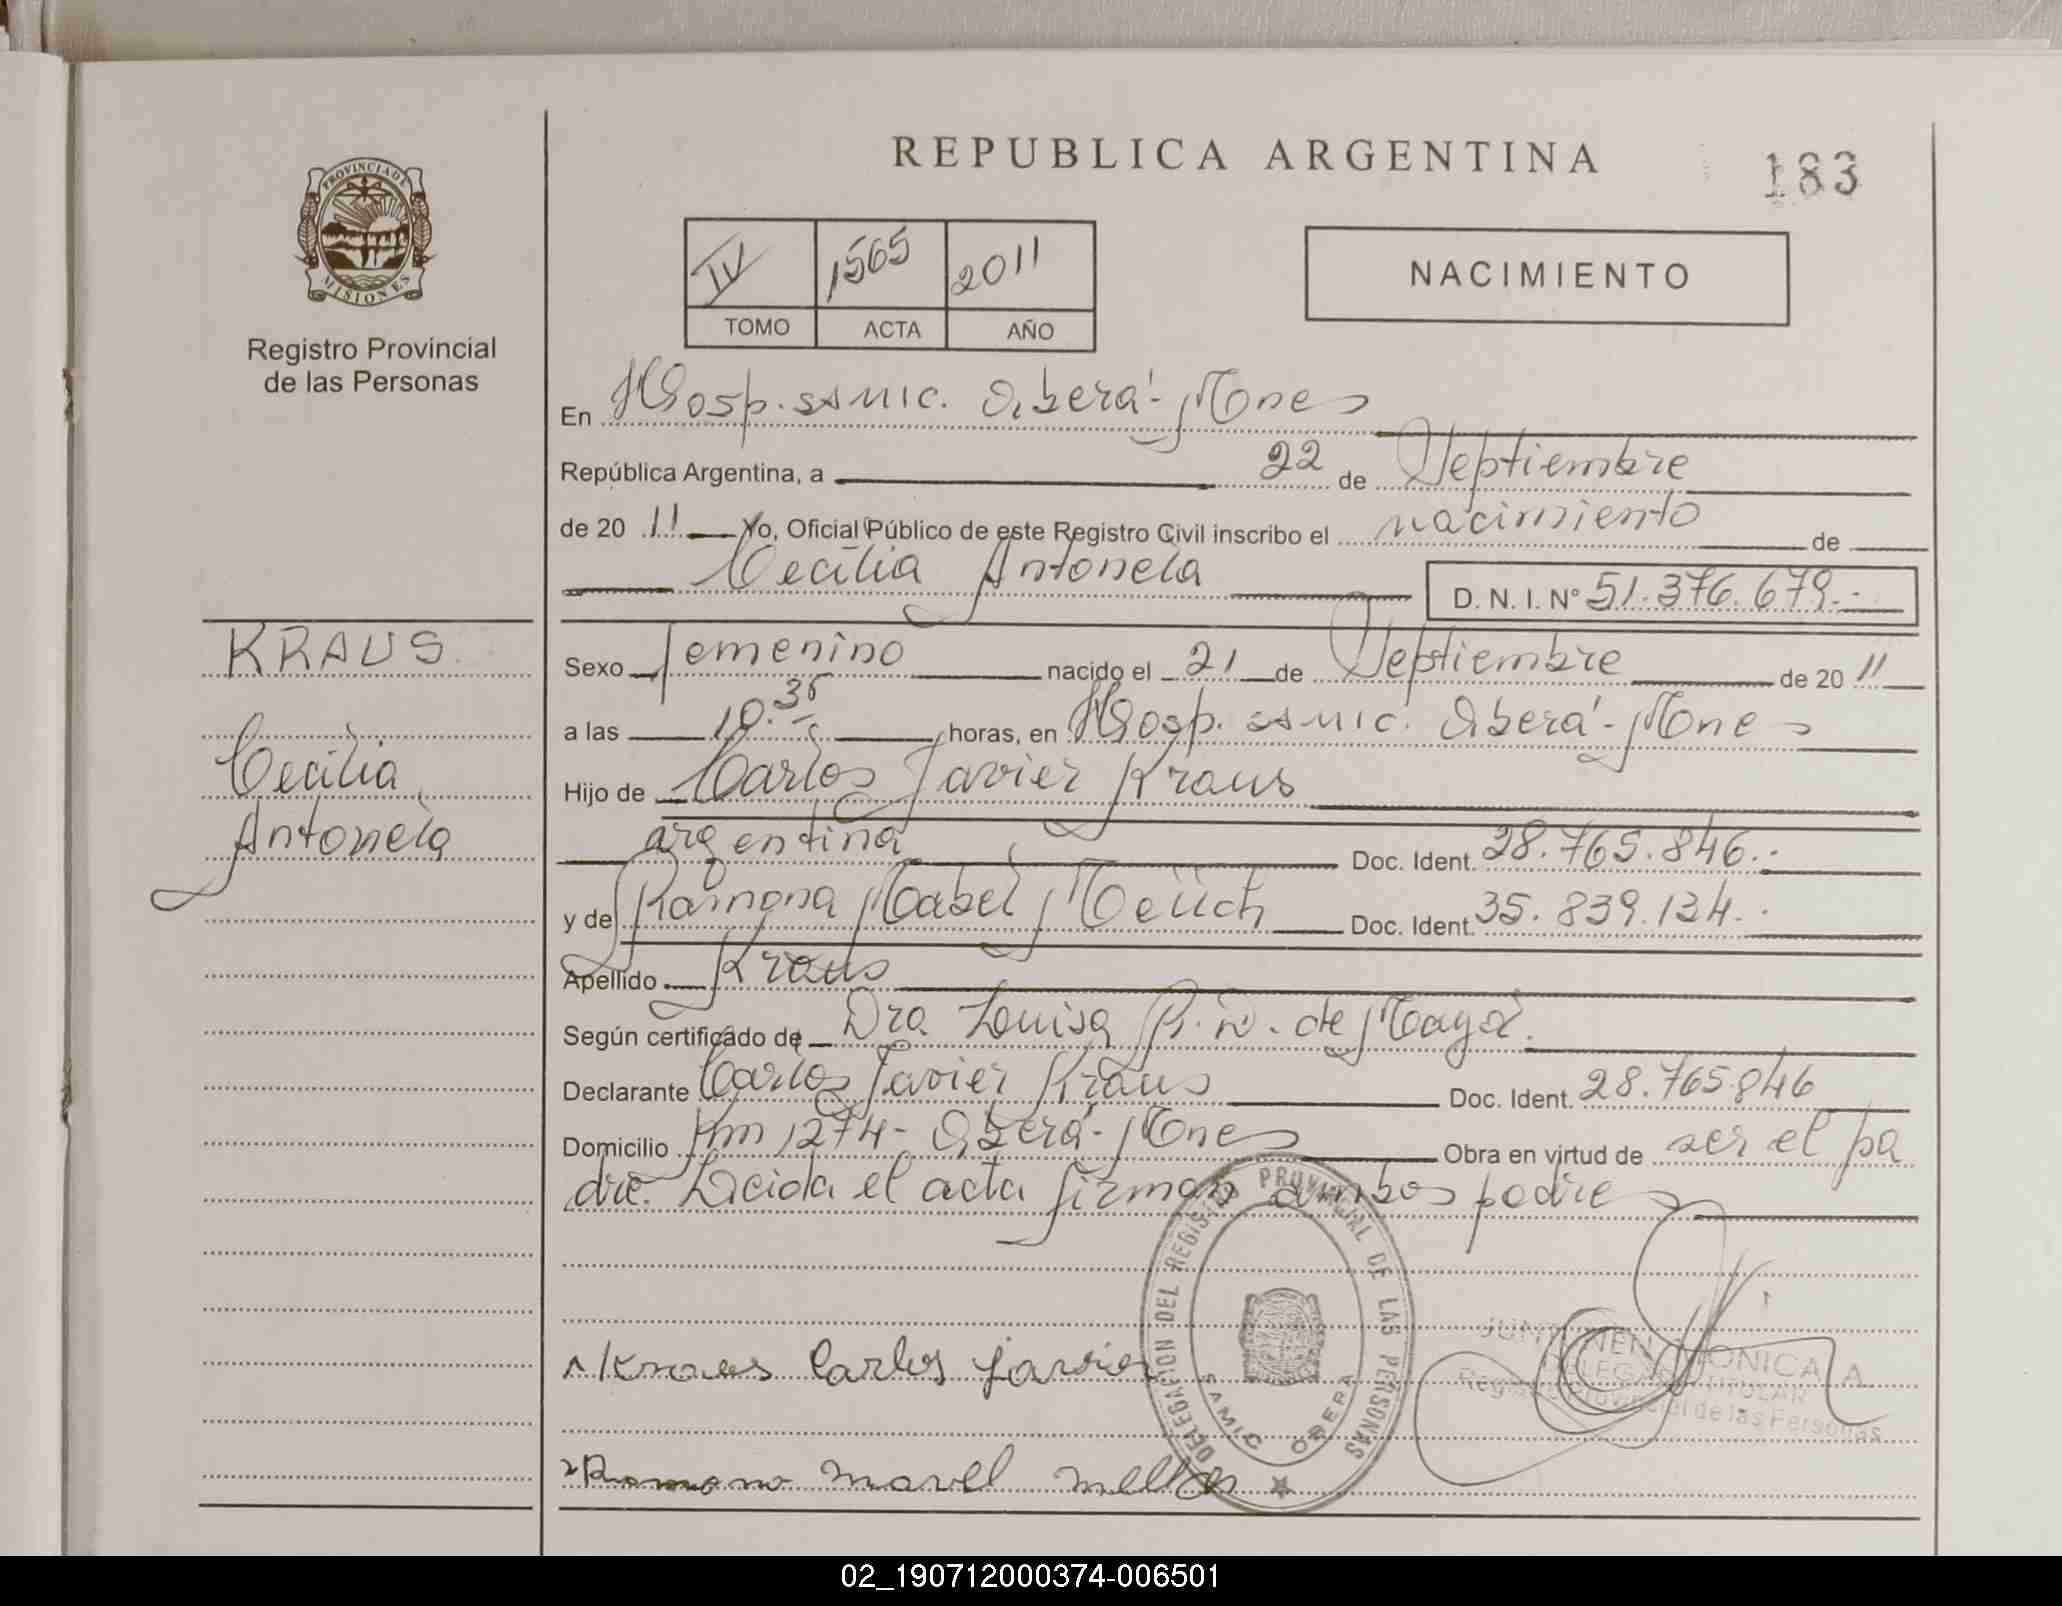 REPUBLICA ARGENTINA
183
PROVINCIA DE
MISIONES
Registro Provincial
de las Personas
IV 1565 2011
TOMO ACTA AÑO
NACIMIENTO
En Hosp. SAMIC. Oberá - Mones
República Argentina, a 22 de Septiembre
de 20 11 Yo, Oficial Público de este Registro Civil inscribo el nacimiento de
Cecilia Antonela D. N. I. Nº 51.376.679.-
KRAUS
Cecilia
Antonela
Sexo femenino nacido el 21 de Septiembre de 20 11
a las 10.35 horas, en Hosp. SAMIC. Oberá - Mones
Hijo de Carlos Javier Kraus
argentina Doc. Ident. 28.765.846.-
y de Ramona Mabel Doc. Ident. 35.839.134.-
Apellido Kraus
Según certificado de Dra Louisa R. D. de Maya.
Declarante Carlos Javier Kraus Doc. Ident. 28.765.846
Domicilio Km 1274 - Oberá - Mones Obra en virtud de ser el pa
dre. Leida el acta firman ambos padres
DELEGACION DEL REGISTRO PROVINCIAL DE LAS PERSONAS
SAMIC OBERA
Kraus Carlos Javier
MONICA A.
DELEGADA TITULAR
Registro Provincial de las Personas
Ramona Mavel
02_190712000374-006501